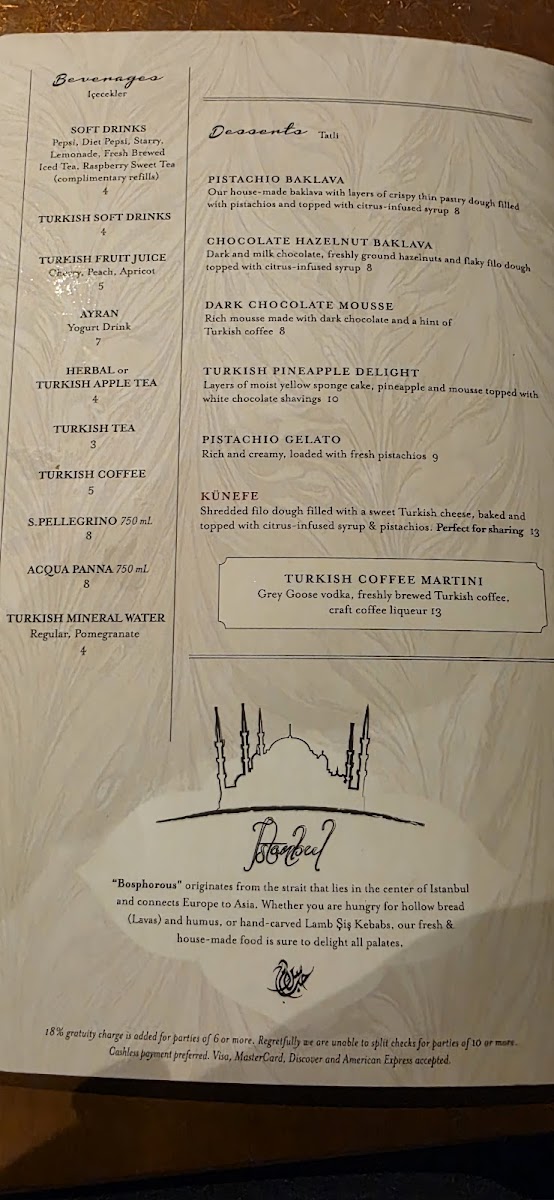 Beverages
İçecekler
SOFT DRINKS
Pepsi, Diet Pepsi, Starry,
Lemonade, Fresh Brewed
Iced Tea, Raspberry Sweet Tea
(complimentary refills)
4
TURKISH SOFT DRINKS
4
TURKISH FRUIT JUICE
Cherry, Peach, Apricot
5
AYRAN
Yogurt Drink
7
HERBAL or
TURKISH APPLE TEA
4
TURKISH TEA
3
TURKISH COFFEE
5
S.PELLEGRINO 750 mL
8
ACQUA PANNA 750 mL
8
TURKISH MINERAL WATER
Regular, Pomegranate
4
Desserts Tatli
PISTACHIO BAKLAVA
Our house-made baklava with layers of crispy thin pastry dough filled
with pistachios and topped with citrus-infused syrup 8
CHOCOLATE HAZELNUT BAKLAVA
Dark and milk chocolate, freshly ground hazelnuts and flaky filo dough
topped with citrus-infused syrup 8
DARK CHOCOLATE MOUSSE
Rich mousse made with dark chocolate and a hint of
Turkish coffee 8
TURKISH PINEAPPLE DELIGHT
Layers of moist yellow sponge cake, pineapple and mousse topped with
white chocolate shavings 10
PISTACHIO GELATO
Rich and creamy, loaded with fresh pistachios 9
KÜNEFE
Shredded filo dough filled with a sweet Turkish cheese, baked and
topped with citrus-infused syrup & pistachios. Perfect for sharing 13
TURKISH COFFEE MARTINI
Grey Goose vodka, freshly brewed Turkish coffee,
craft coffee liqueur 13
Istanbul
"Bosphorous" originates from the strait that lies in the center of Istanbul
and connects Europe to Asia. Whether you are hungry for hollow bread
(Lavas) and humus, or hand-carved Lamb Şiş Kebabs, our fresh &
house-made food is sure to delight all palates.
18% gratuity charge is added for parties of 6 or more. Regretfully we are unable to split checks for parties of 10 or more.
Cashless payment preferred. Visa, MasterCard, Discover and American Express accepted.